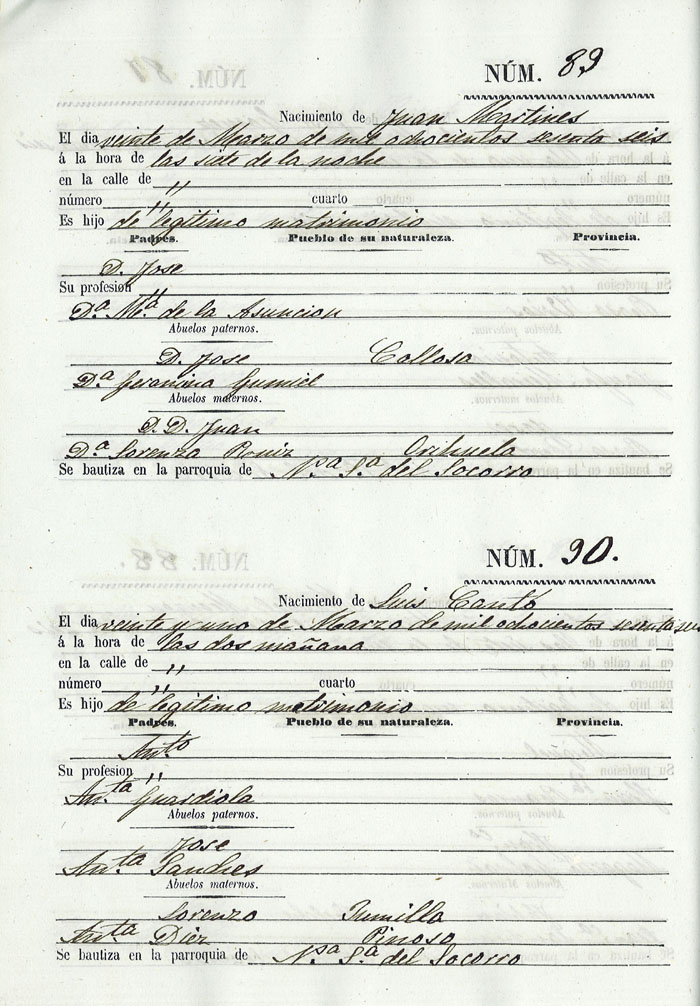 NÚM. 89
Nacimiento de Juan Martines
El dia veinte de Marzo de mil ochocientos sesenta seis
á la hora de las siete de la noche
en la calle de "
número " cuarto
Es hijo de legitimo matrimonio
Padres. Pueblo de su naturaleza. Provincia.
D. Jose
Su profesion "
Dª Mª de la Asuncion
Abuelos paternos.
D. Jose Callosa
Dª Geronima Gumiel
Abuelos maternos.
D. D. Juan
Dª Lorenza Ruiz Orihuela
Se bautiza en la parroquia de Nª Sª del Socorro
NÚM. 90.
Nacimiento de Luis Cantó
El dia veinte y uno de Marzo de mil ochocientos sesenta seis
á la hora de las dos mañana
en la calle de "
número " cuarto
Es hijo de legitimo matrimonio
Padres. Pueblo de su naturaleza. Provincia.
Antº
Su profesion "
Antª Guardiola
Abuelos paternos.
Jose
Antª Sanches
Abuelos maternos.
Lorenzo Jumilla
Antª Diez Pinoso
Se bautiza en la parroquia de Nª Sª del Socorro